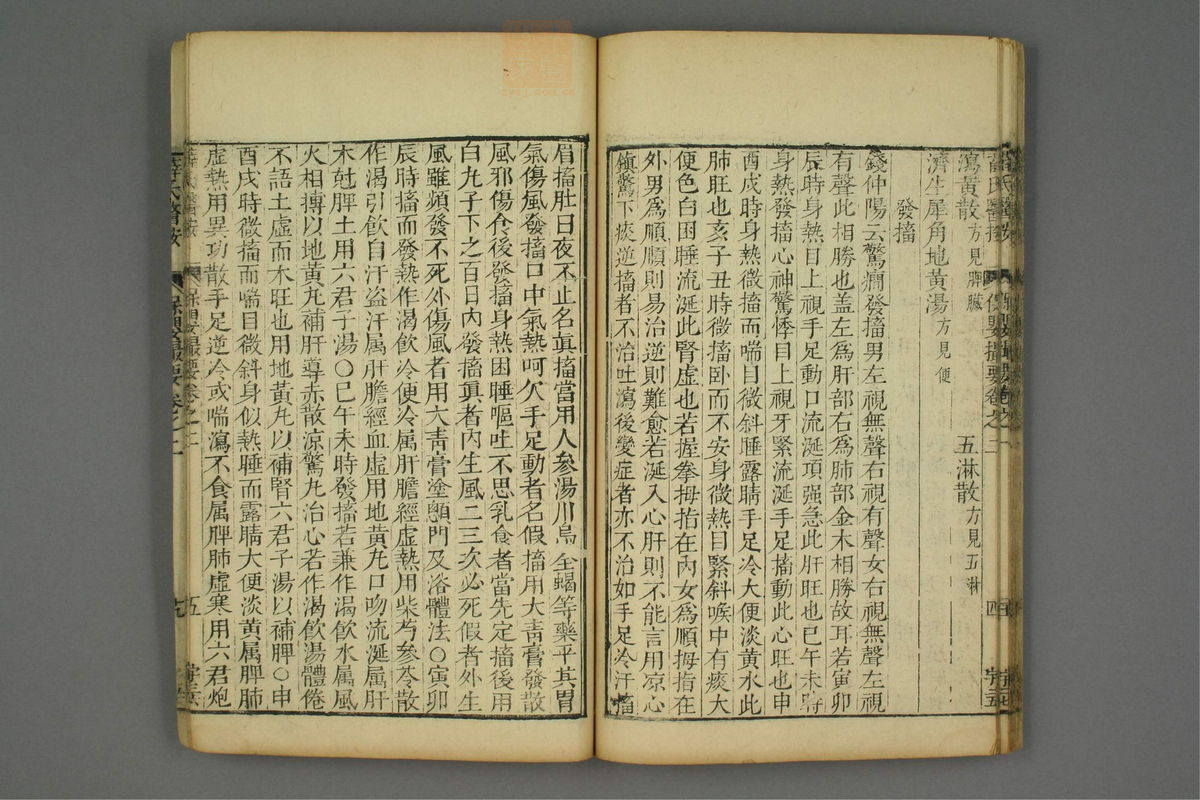 薛氏醫按 保嬰撮要卷之二 四
瀉黃散方見脾臟 五淋散方見五淋
濟生犀角地黃湯方見便
發搐
錢仲陽云驚癎發搐男左視無聲右視有聲女右視無聲左視
有聲此相勝也盖左為肝部右為肺部金木相勝故耳若寅卯
辰時身熱目上視手足動口流涎項强急此肝旺也巳午未時
身熱發搐心神驚悸目上視牙緊流涎手足搐動此心旺也申
酉戌時身熱微搐而喘目微斜睡露睛手足冷大便淡黃水此
肺旺也亥子丑時微搐卧而不安身微熱目緊斜喉中有痰大
便色白困睡流涎此腎虛也若握拳拇指在內女為順拇指在
外男為順順則易治逆則難愈若涎入心肝則不能言用凉心
鎮驚下痰逆搐者不治吐瀉後變症者亦不治如手足冷汗搐
眉搐肚日夜不止名眞搐當用人參湯川烏全蝎等藥平其胃
氣傷風發搐口中氣熱呵欠手足動者名假搐用大青膏發散
風邪傷食後發搐身熱困睡嘔吐不思乳食者當先定搐後用
白丸子下之百日內發搐眞者內生風二三次必死假者外生
風雖頻發不死外傷風者用大青膏塗顖門及浴體法○寅卯
辰時搐而發熱作渴飲冷便冷属肝膽經虛熱用柴芍參苓散
作渴引飲自汗盗汗属肝膽經血虛用地黃丸口吻流涎属肝
木尅脾土用六君子湯○巳午未時發搐若兼作渴飲水属風
火相摶以地黃丸補肝導赤散凉驚丸治心若作渴飲湯體倦
不語土虛而木旺也用地黃丸以補腎六君子湯以補脾○申
酉戌時微搐而喘目微斜身似熱睡而露睛大便淡黃属脾肺
虛熱用異功散手足逆冷或喘瀉不食属脾肺虛寒用六君炮
薛氏醫按 保嬰撮要卷之二 五